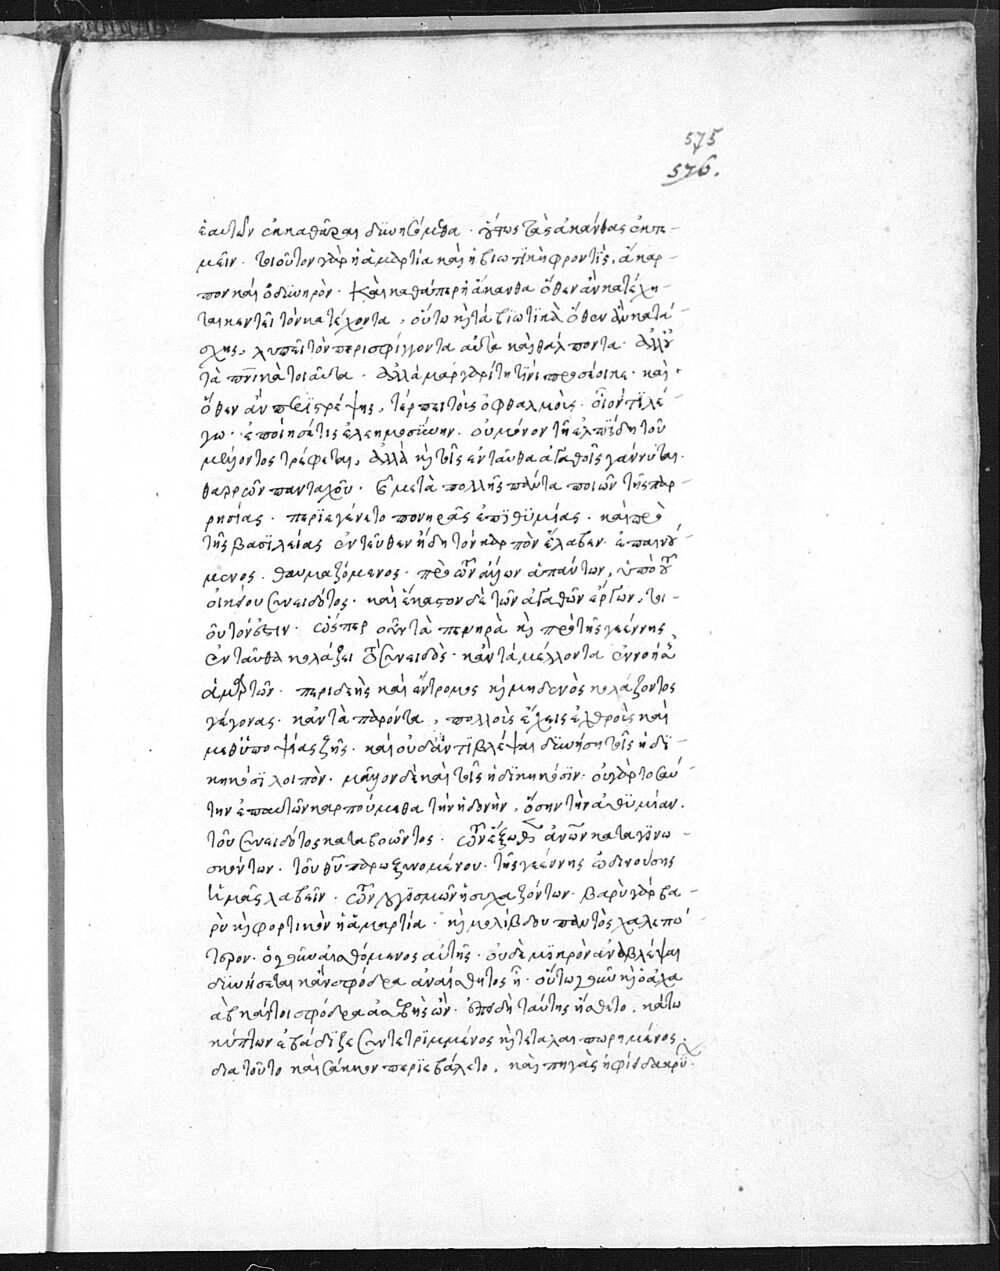 575
576.
ἑαυτῶν ἐκκαθᾶραι δυνησόμεθα · οὕτως τὰς ἀκάνθας ἐκτε-
μεῖν · τοιοῦτον γὰρ ἡ ἁμαρτία καὶ ἡ βιωτικὴ φροντὶς, ἄκαρ-
πον καὶ ὀδυνηρὸν · Καὶ καθάπερ ἡ ἄκανθα ὅθεν ἂν κατέχη-
ται κεντεῖ τὸν κατέχοντα, οὕτω κ τὰ βιωτικὰ ὅθεν ἂν κατά-
σχης, λυπεῖ τὸν περισφίγγοντα αὐτὰ καὶ θάλποντα · Ἀλλ οὐ
τὰ πνικὰ τοιαῦτα · Ἀλλὰ μαργαρίτη τινὶ προσέοικε · καὶ
ὅθεν ἂν περιστρέψης, τέρπει τοὺς ὀφθαλμοὺς · οἷον τί λέ-
γω · ἐποίησέ τις ἐλεημοσύνην · οὐ μόνον τῆ ἐλπίδη τοῦ
μέλλοντος τρέφεται, Ἀλλὰ κ τοῖς ἐνταῦθα ἀγαθοῖς γάννυται
θαρρῶν πανταχοῦ · κ μετὰ πολλῆς πάντα ποιῶν τῆς παρ-
ρησίας · περιεγένετο πονηρᾶς ἐπιθυμίας · καὶ πρὸ
τῆς βασιλείας ἐντεῦθεν ἤδη τὸν καρπὸν ἔλαβεν · ἐπαινού
μενος · θαυμαζόμενος · πρὸ τῶν ἄλλων ἁπάντων, ὑπὸ τοῦ
οἰκείου συνειδότος · καὶ ἕκαστον δὲ τῶν ἀγαθῶν ἔργων, τοι-
οῦτόν ἐστιν · ὥσπερ οὖν τὰ πονηρὰ κ πρὸ τῆς γεέννης
ἐνταῦθα κολάζει τὸ συνειδὸς · κἂν τὰ μέλλοντα ἐννοήσ
ἁμαρτὼν · περιδεὴς καὶ ἔντρομος κ μηδενὸς κολάζοντος
γέγονας · κἂν τὰ παρόντα, πολλοὺς ἔχεις ἐχθροὺς καὶ
μεθ ὑποψίας ζῆς · καὶ οὐδ ἀντιβλέψαι δυνήση τοῖς ἠδι-
κηκόσι λοιπὸν · μᾶλλον δὲ καὶ τοῖς ἠδικηκόσιν · οὐ γὰρ τοσαύ
την ἐπ αὐτῶν καρπούμεθα τὴν ἡδονὴν, ὅσην τὴν ἀθυμίαν ·
τοῦ συνειδότος καταβοῶντος · τῶν ἔξωθεν ἀνων καταγινω-
σκόντων · τοῦ θῦ παροξυνομένου · τῆς γεέννης ὠδινούσης
ἡμᾶς λαβεῖν · τῶν λογισμῶν ἡσυχαζόντων · βαρὺ γὰρ βα-
ρὺ κ φορτικὸν ἡ ἁμαρτία · κ μολίβδου παντὸς χαλεπώ
τερον · ὁ γοῦν αἰσθόμενος αὐτῆς · οὐδὲ μικρὸν ἀναβλέψαι
δυνήσεται κἂν σφόδρα ἀναίσθητος ἦ · οὕτω γοῦν κ ὁ ἀχα
ὰβ καίτοι σφόδρα ἀσεβὴς ὢν · ἐπειδὴ ταύτης ἤσθετο, κάτω
κύπτων ἐβάδιζε συντετριμμένος κ τεταλαιπωρημένος ·
διατοῦτο καὶ σάκκον περιεβάλετο, καὶ πηγὰς ἠφίει δακρύ